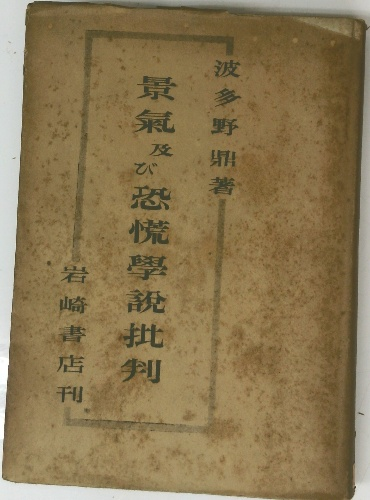 波多野鼎著
景氣及び恐慌學說批判
岩崎書店刊